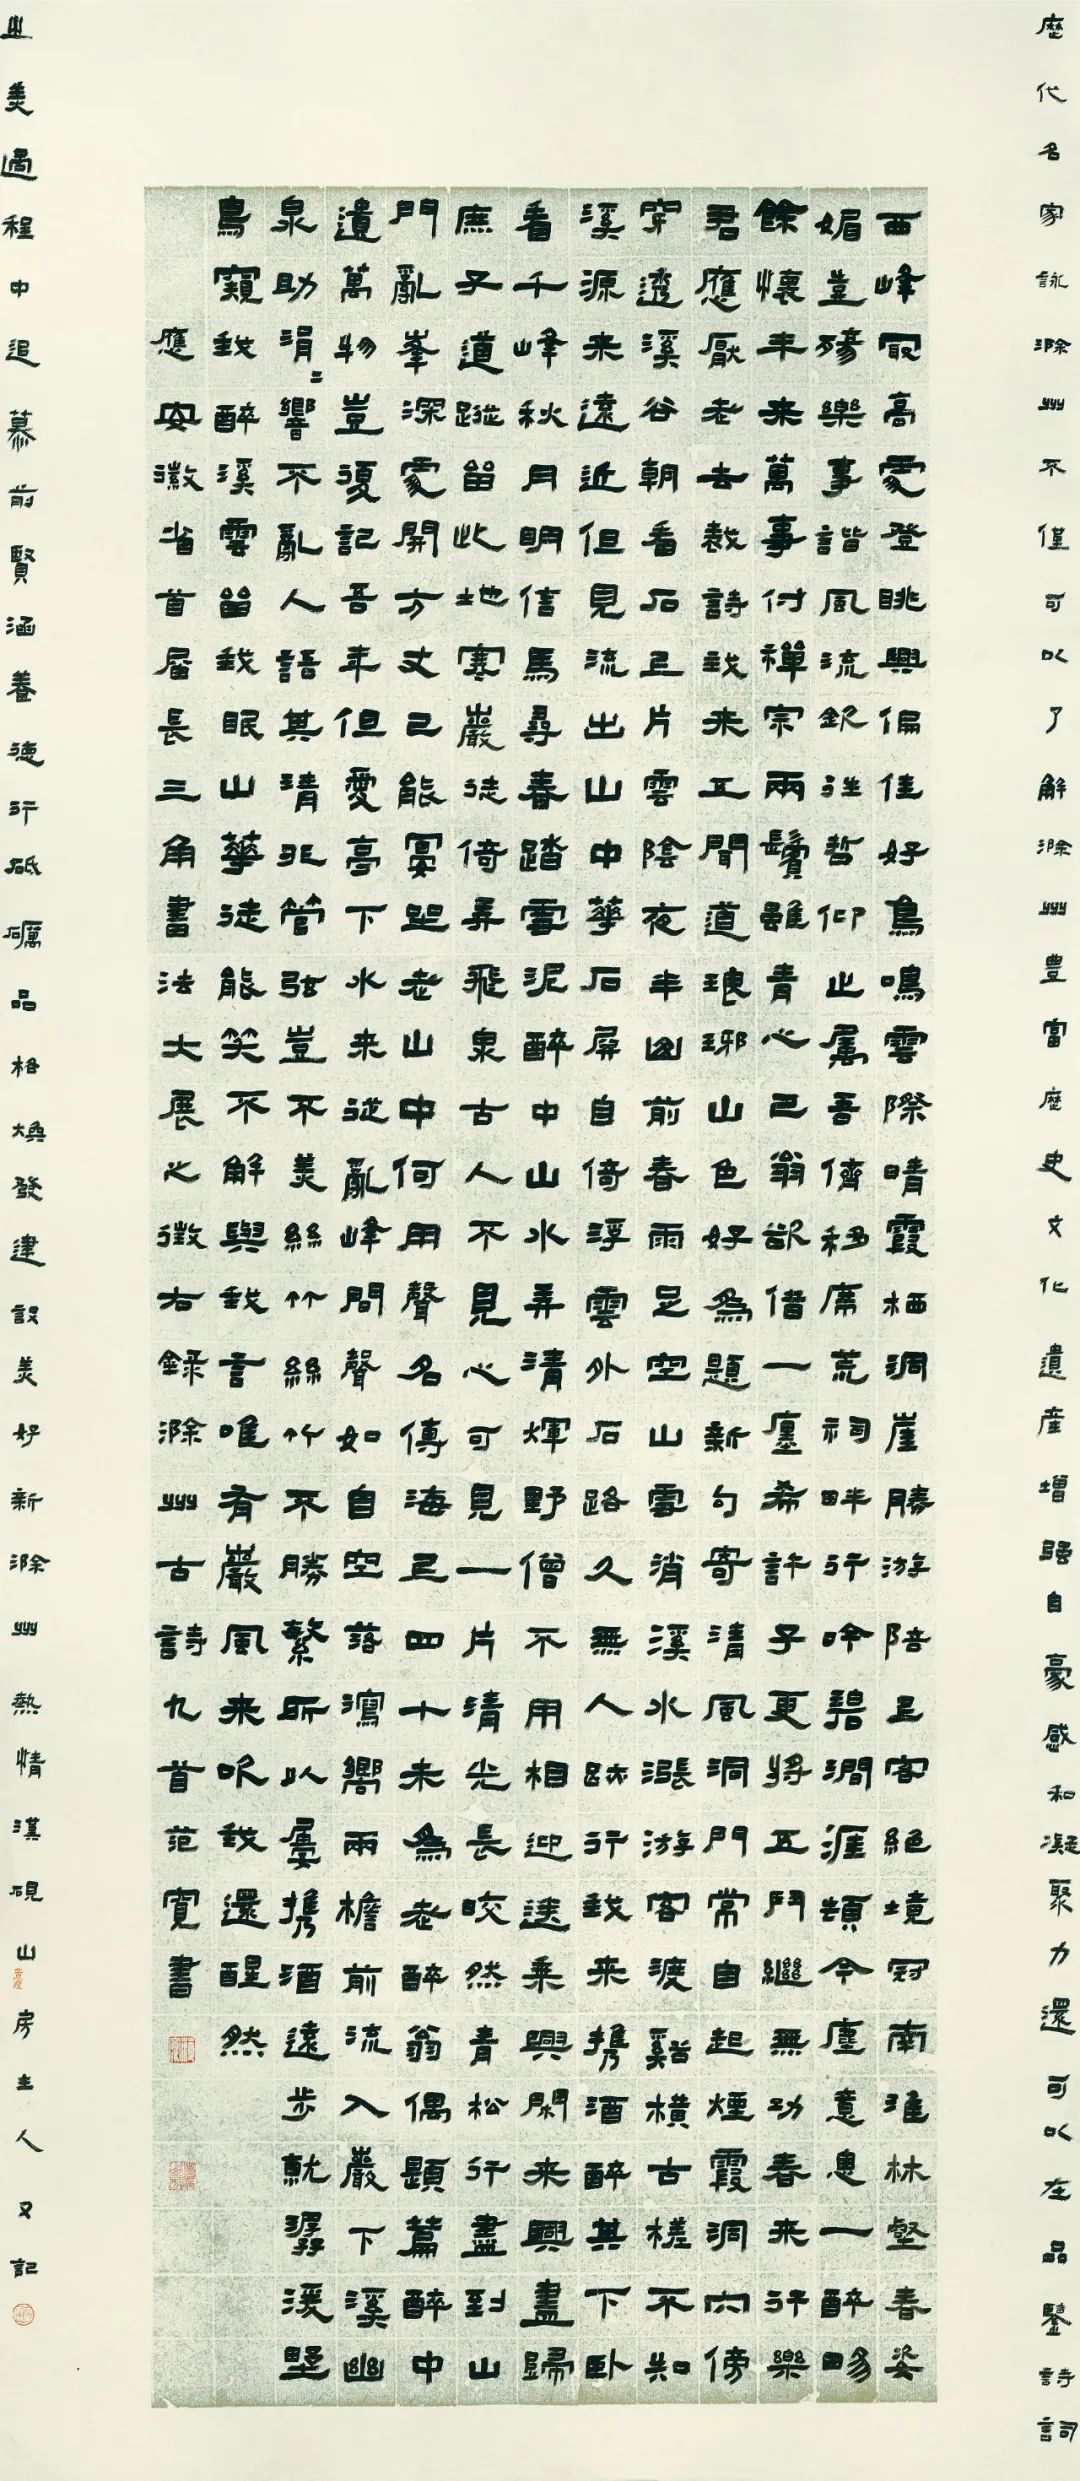 歷代名家詠滁州不僅可以了解滁州豐富歷史文化遺產增强自豪感和凝聚力還可以在品鑒詩詞
西峰冣高處登眺興偏佳好鳥鳴雲際晴霞栖洞崖勝游陪上客絕境冠南淮林壑春姿
媚豈殢樂事諧風流欽往哲仰止屬吾儕移席荒祠畔行吟碧澗涯頓令塵意息一醉暢
餘懷年来萬事付禪宗兩鬢雖青心已翁欲借一廛希許子更將五鬥繼無功春来行樂
君應厭老去裁詩我来工聞道琅琊山色好為題新句寄清風洞門常自起煙霞洞穴傍
穿透溪谷朝看石上片雲陰夜半山前春雨足空山雲消溪水漲游客渡谿橫古槎不知
溪源来遠近但見流出山中華石屏自倚浮雲外石路久無人跡行我来携酒醉其下臥
看千峰秋月明信馬尋春踏雪泥醉中山水弄清輝野僧不用相迎送乘興閑来興盡歸
庶子道蹤留此地寒巖徙倚弄飛泉古人不見心可見一片清光長皎然青松行盡到山
門亂峯深處開方丈已能宴坐老山中何用聲名傳海上四十未為老醉翁偶題篇醉中
遺萬物豈復記吾年但愛亭下水来從亂峰間聲如自空落瀉嚮兩檐前流入巖下溪幽
泉助涓〻響不亂人語其清非管弦豈不美絲竹絲竹不勝繁所以屢携酒遠步就潺湲野
鳥窺我醉溪雲留我眠山華徒能笑不解與我言唯有巖風来吹我還醒然
應安徽省首屆長三角書法大展之徵右錄滁州古詩九首范寬書
之美過程中追慕前賢涵養德行砥礪品格煥發建設美好新滁州熱情漢硯山房主人又記